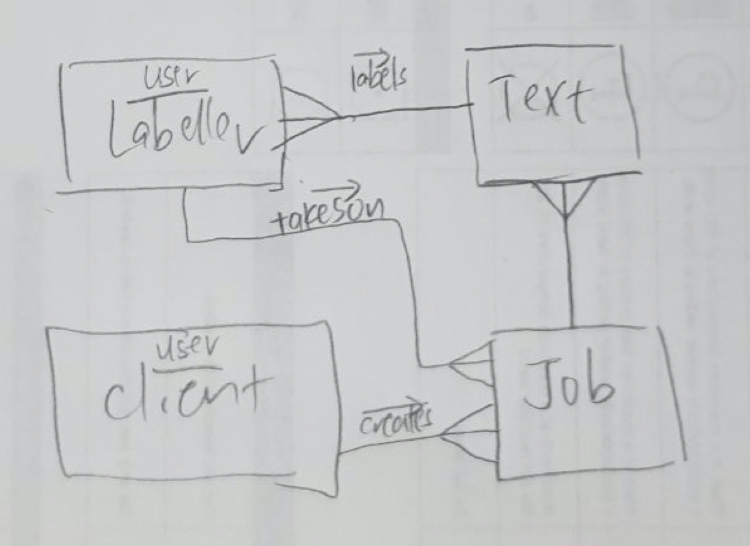 user
Labeller
labels
Text
takes on
user
client
creates
Job